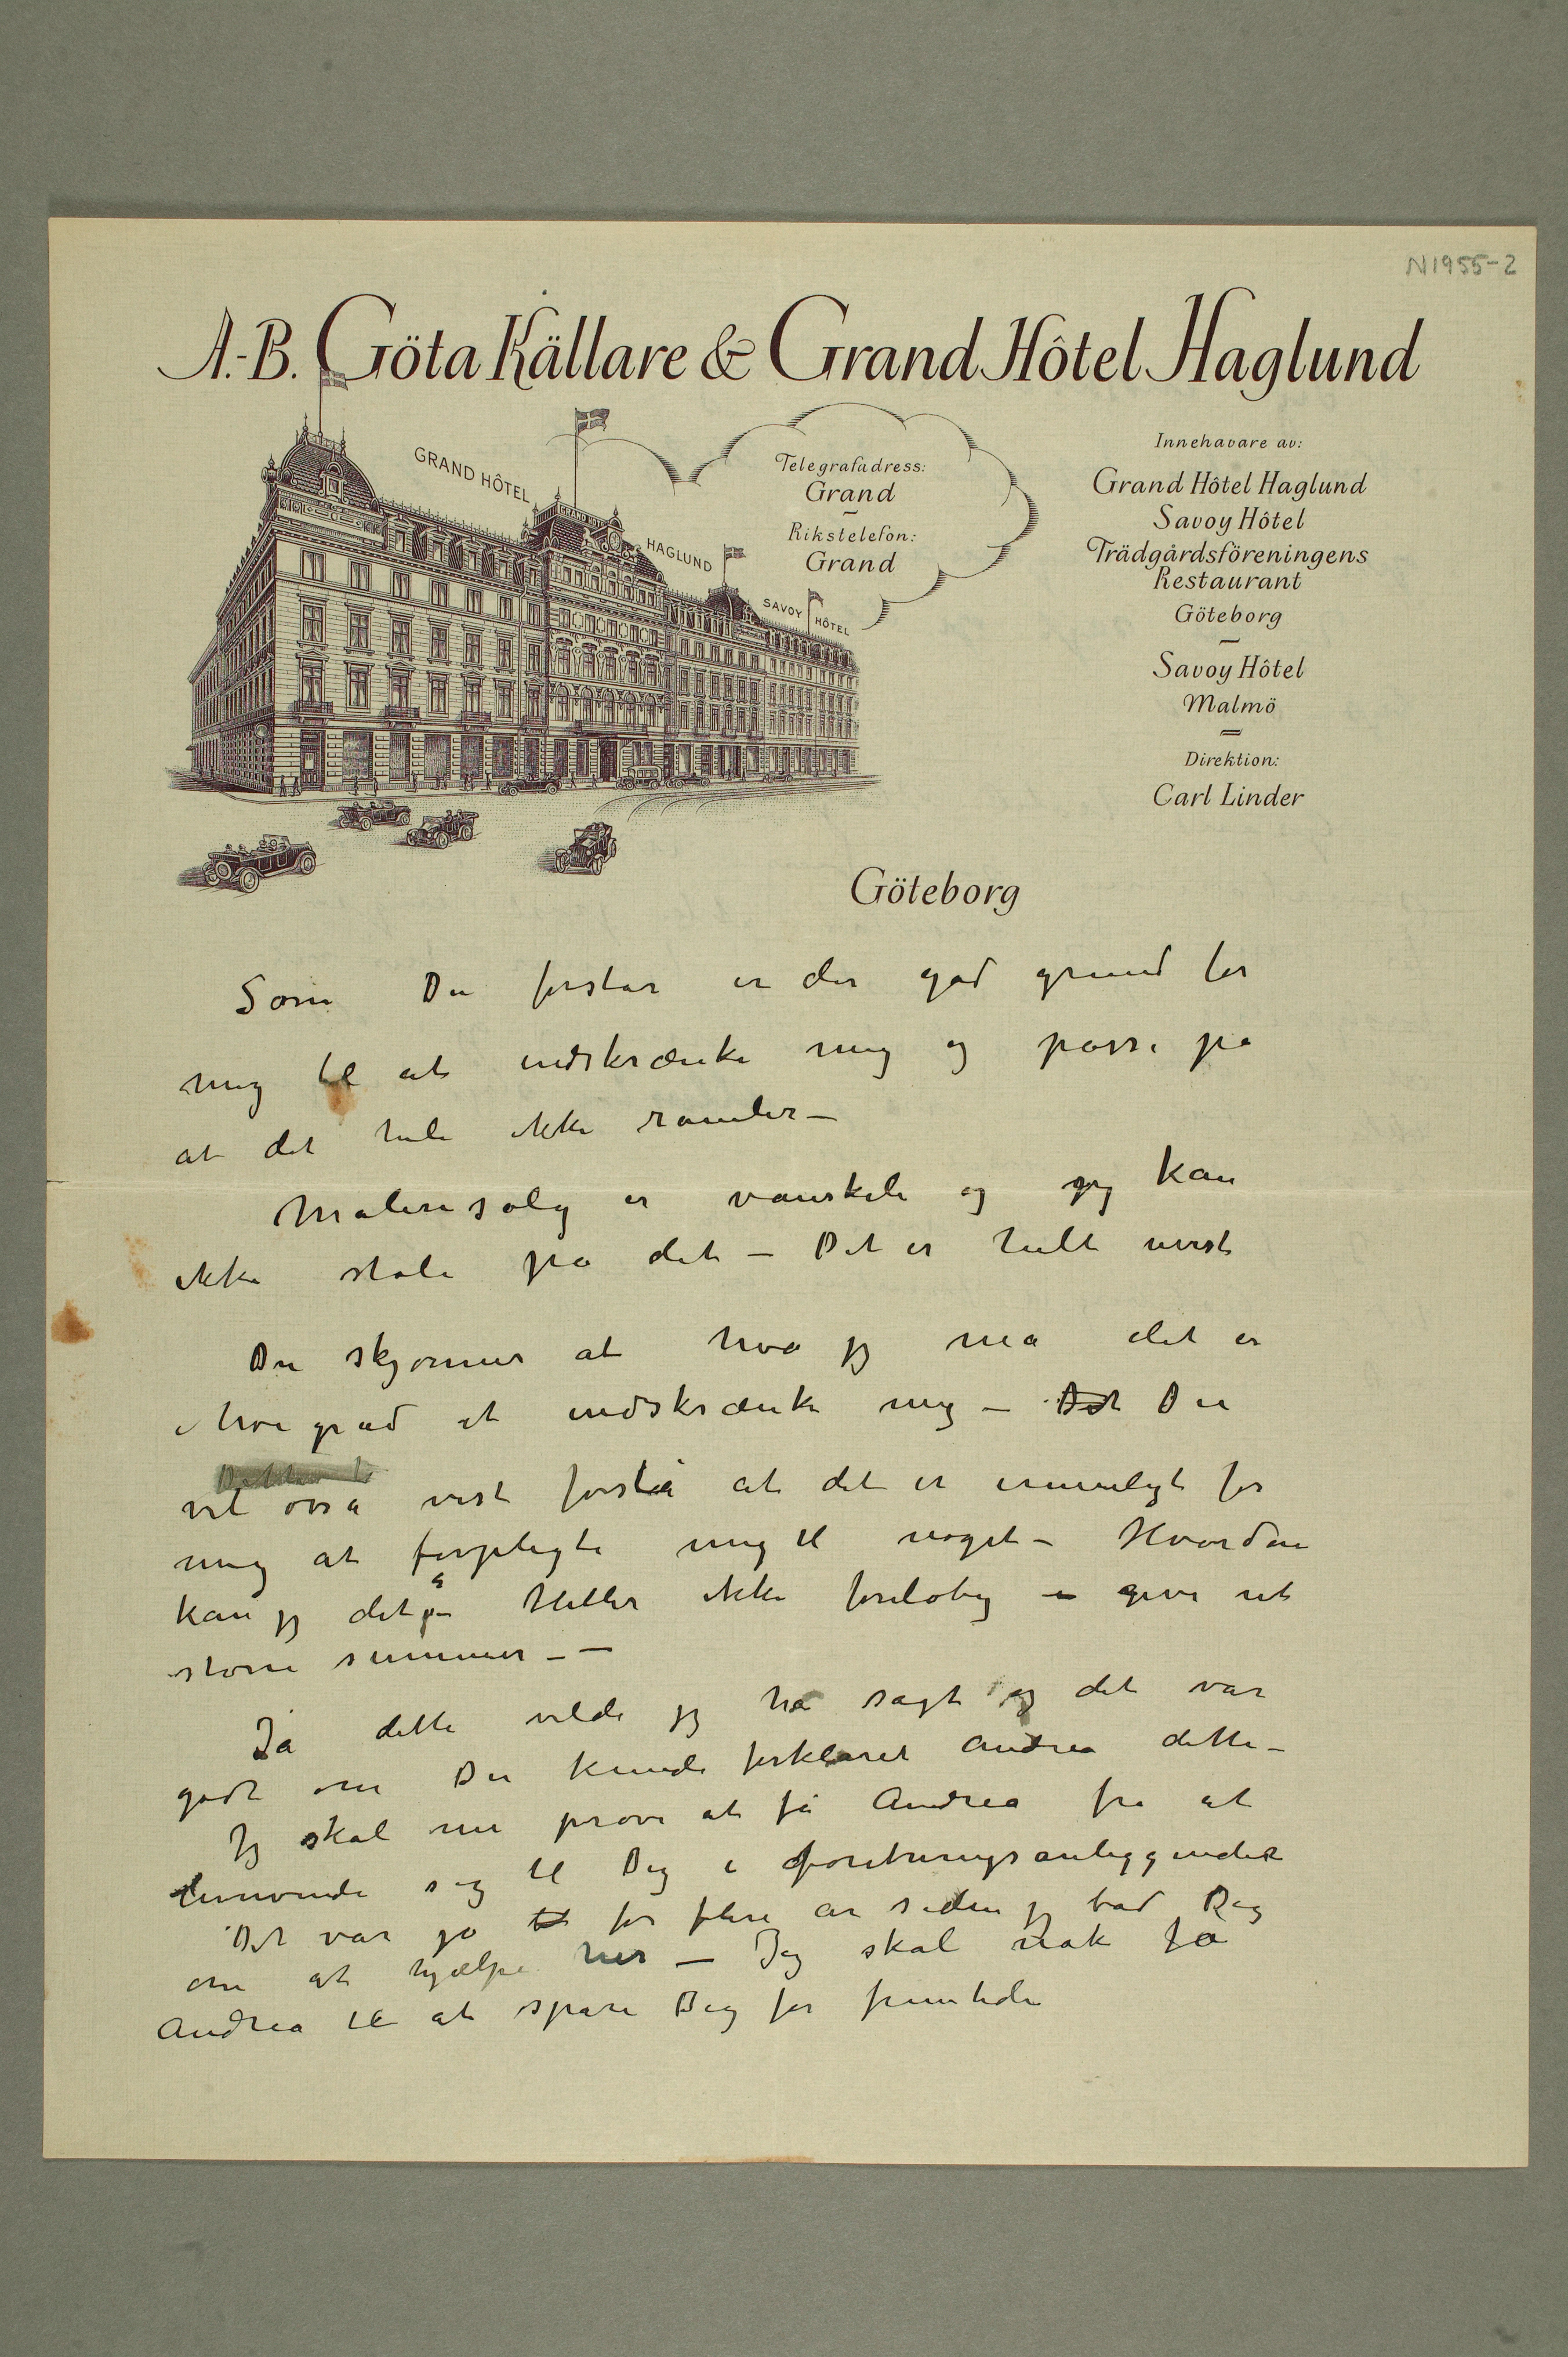 N1955-2
A.-B. Göta Källare & Grand Hôtel Haglund
GRAND HÔTEL
HAGLUND
SAVOY HÔTEL
GRAND HOTEL
Telegrafadress:
Grand
Rikstelefon:
Grand
Innehavare av:
Grand Hôtel Haglund
Savoy Hôtel
Trädgårdsföreningens
Restaurant
Göteborg
Savoy Hôtel
Malmö
Direktion:
Carl Linder
Göteborg
Som Du forstår er der god grund for
mig til at indskrænke mig og passe på
at det hele ikke ramler –
Malerisalg er vanskeli og jeg kan
ikke stole på det – Det er helt uvist
Du skjønner at hva jeg må det er
i høi grad at indskrænke mig – Det Du
vil osså vist forstå at det er umuligt for
mig at forpligte mig til noget – Hvordan
kan jeg det på Heller ikke foreløbig give ut
større summer – –
Ja dette vilde jeg ha sagt og det var
godt om Du kunde forklaret Andrea dette –
Jeg skal nu prøve at få Andrea fra at
henvende sig til Dig i foretningsanliggender
Det var jo for flere år siden jeg bad Dig
om at hjælpe her – Jeg skal nok få
Andrea til at spare Dig for fremtiden